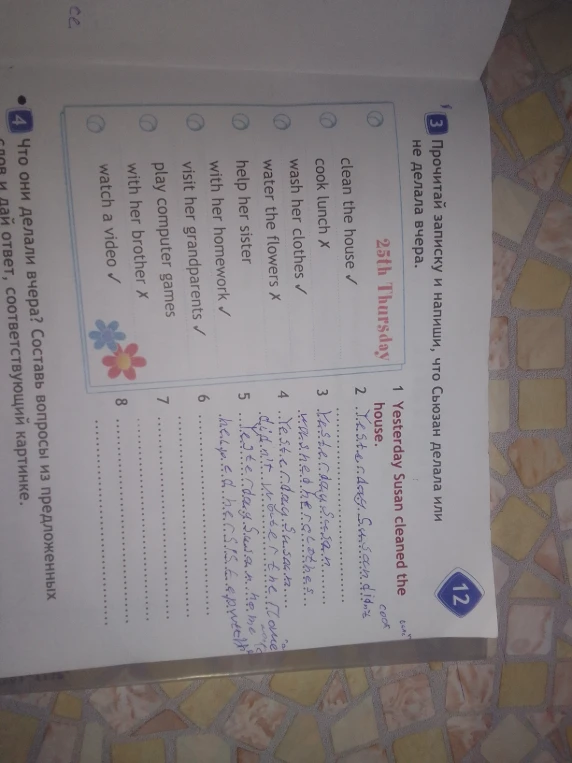 12
3 Прочитай записку и напиши, что Сьюзан делала или
не делала вчера.
25th Thursday
clean the house ✓
cook lunch ✗
wash her clothes ✓
water the flowers ✗
help her sister
with her homework ✓
visit her grandparents ✓
play computer games
with her brother ✗
watch a video ✓
1 Yesterday Susan cleaned the
house.
2 Yesterday Susan didn't
cook
3 Yesterday Susan
washed her clothes
4 Yesterday Susan
didn't water the
5 Yesterday Susan
helped her sister
6
7
8
4 Что они делали вчера? Составь вопросы из предложенных
слов и дай ответ, соответствующий картинке.